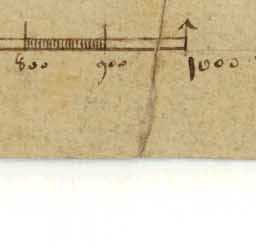 800 900 1000